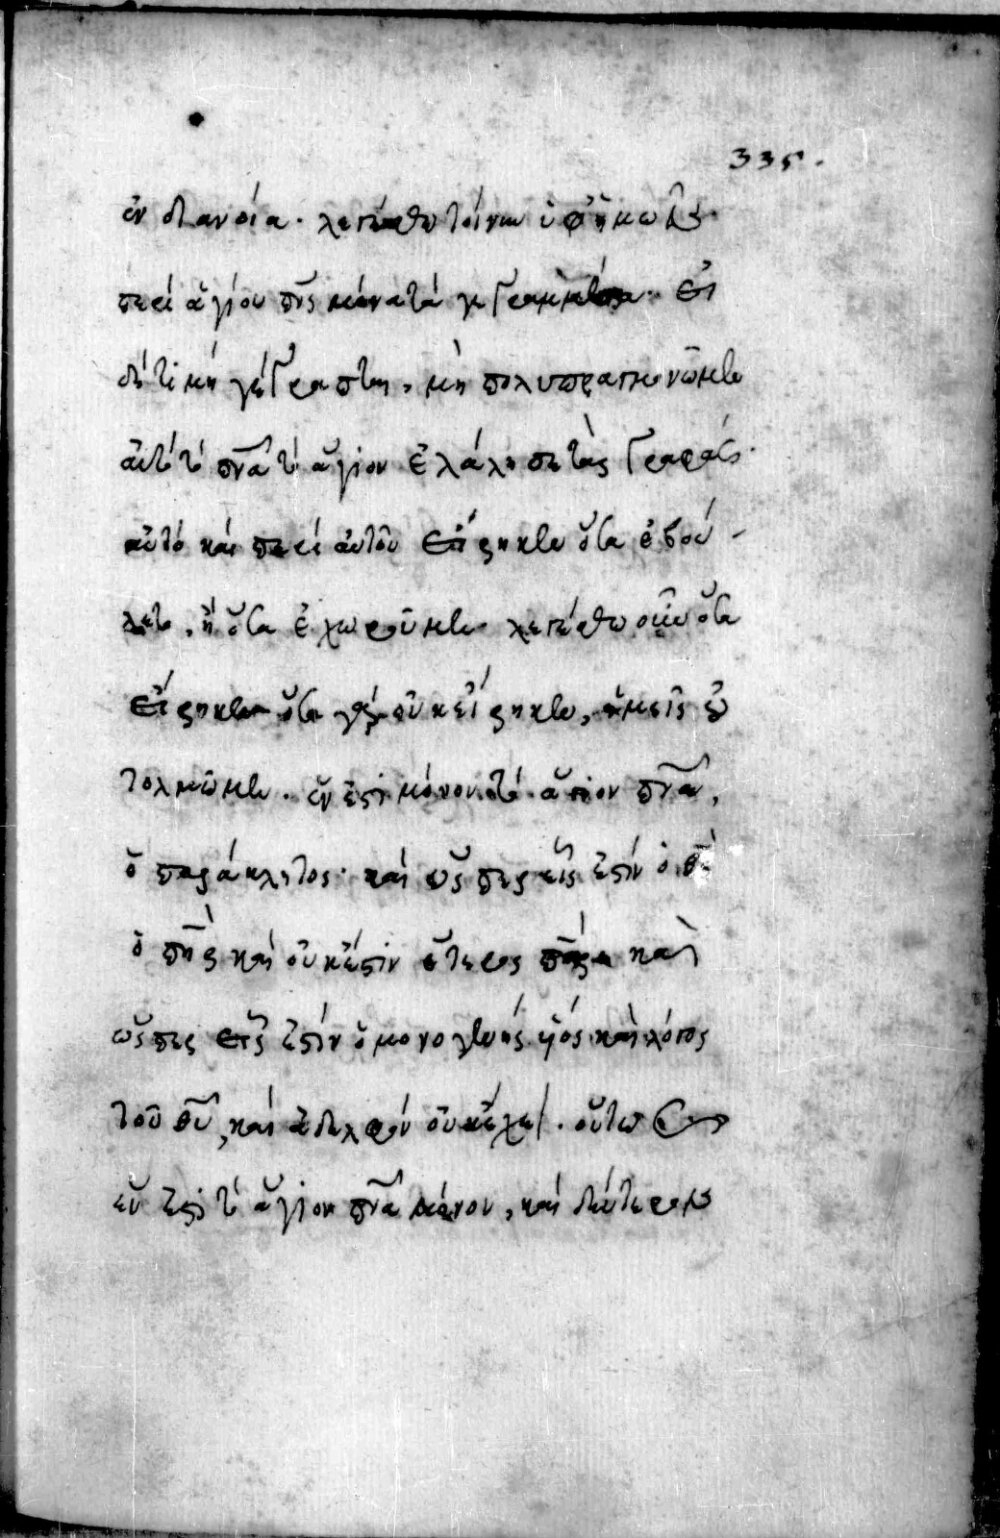 335.
ἐν διανοία. λεγέσθω τοίνυν ὑφ' ἡμῶν
περὶ ἁγίου πνς μόνα τὰ γεγραμμένα. εἰ
δέ τι μὴ γέγραπται, μὴ πολυπραγμονῶμεν
αὐτὸ τὸ πνα τὸ ἅγιον ἐλάλησε τὰς γραφάς.
αὐτὸ καὶ περὶ αὐτοῦ εἴρηκεν ὅσα ἐβού-
λετο, ἢ ὅσα ἐχωροῦμεν. λεγέσθω οὖν ὅσα
εἴρηκεν ὅσα γὰρ οὐκ εἴρηκεν, ἡμεῖς οὐ
τολμῶμεν. ἕν ἐστι μόνον τὸ ἅγιον πνα,
ὁ παράκλητος. καὶ ὥσπερ εἷς ἐστὶν ὁ θς
ὁ πηρ καὶ οὐκ ἔστιν ἕτερος πηρ καὶ
ὥσπερ εἷς ἐστὶν ὁ μονογενὴς υἱός καὶ λόγος
τοῦ θυ, καὶ ἀδελφὸν οὐκ ἔχει. οὕτως
ἕν ἐστι τὸ ἅγιον πνα μόνον, καὶ δεύτερον